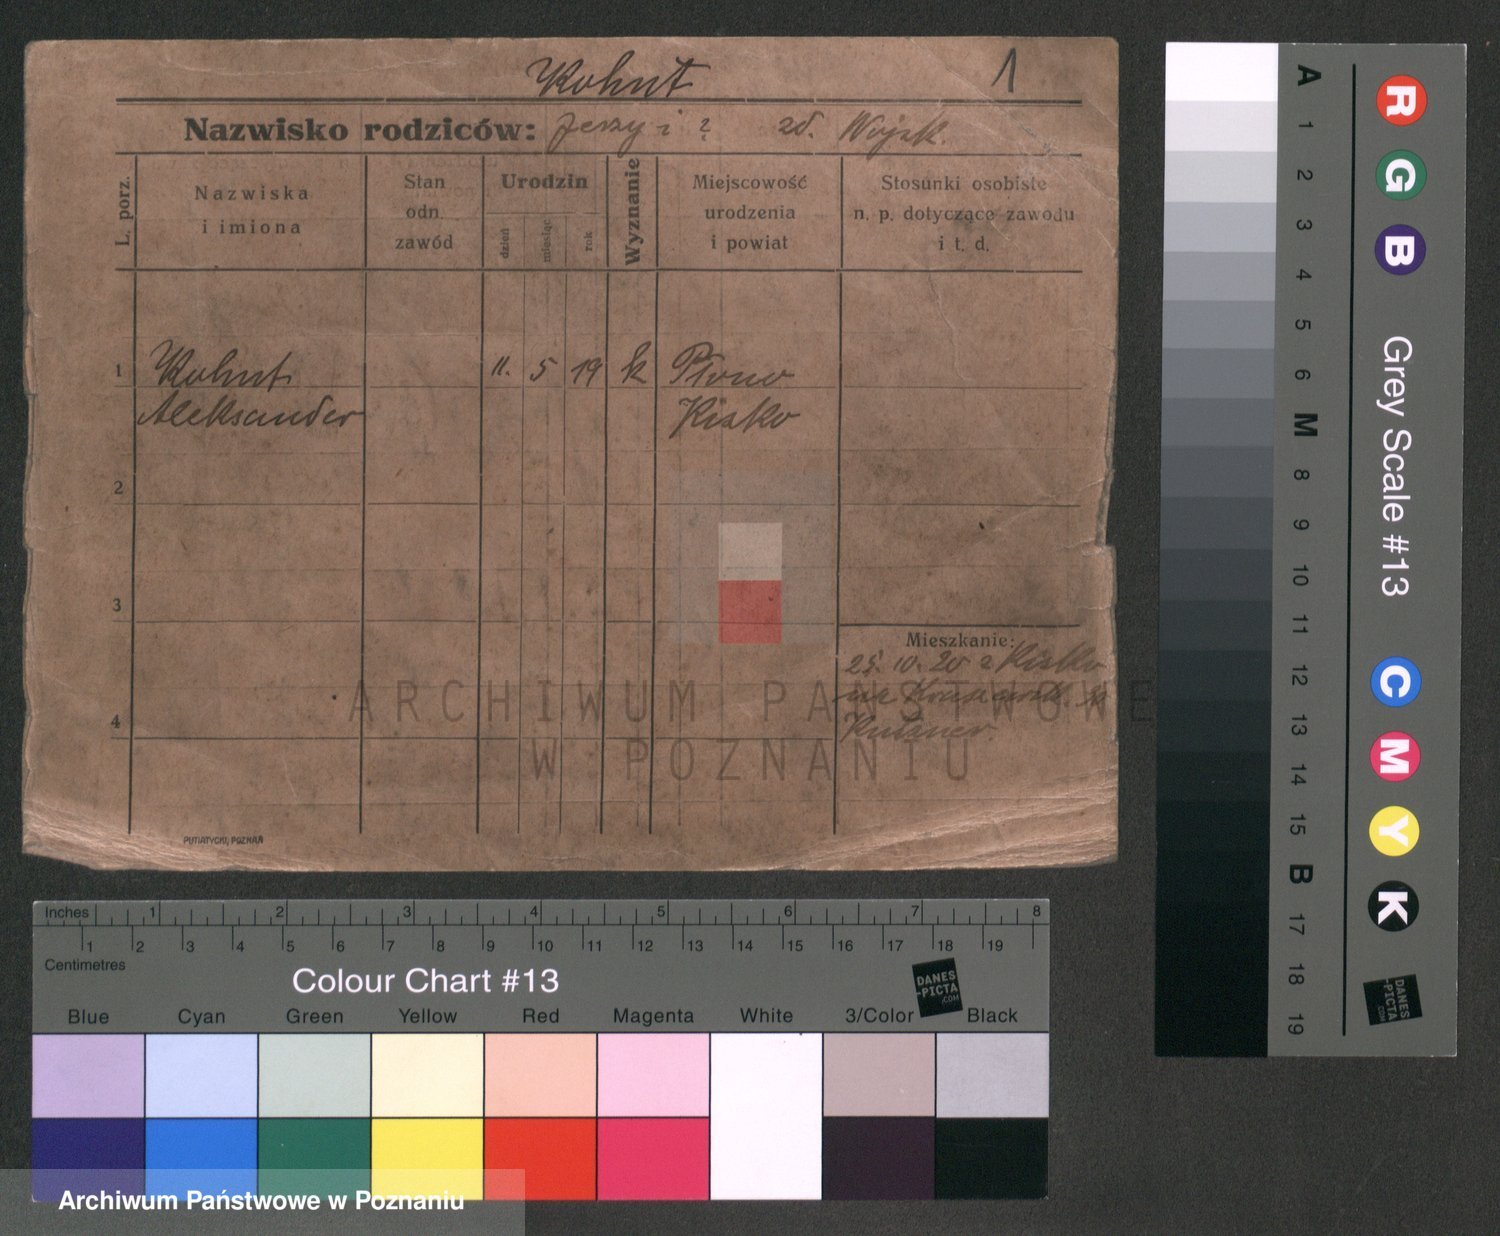 Kohnt 1
Nazwisko rodziców: Jerzy i ? zd. Wojsk.
L. porz.
Nazwiska
i imiona
Stan
odn.
zawód
Urodzin
dzień
miesiąc
rok
Wyznanie
Miejscowość
urodzenia
i powiat
Stosunki osobiste
n. p. dotyczące zawodu
i t. d.
1 Kohnt 11. 5 19 k
Aleksander Kisko
2
3
Mieszkanie:
25. 10. 20 z Kisko
4
PUTIATYCKI, POZNAŃ
ARCHIWUM PAŃSTWOWE
W POZNANIU
Inches 1 2 3 4 5 6 7 8
1 2 3 4 5 6 7 8 9 10 11 12 13 14 15 16 17 18 19
Centimetres
Colour Chart #13
DANES
-PICTA
.COM
Blue Cyan Green Yellow Red Magenta White 3/Color Black
Archiwum Państwowe w Poznaniu
A 1 2 3 4 5 6 M 8 9 10 11 12 13 14 15 B 17 18 19
R G B
Grey Scale #13
C M Y K
DANES
-PICTA
.COM